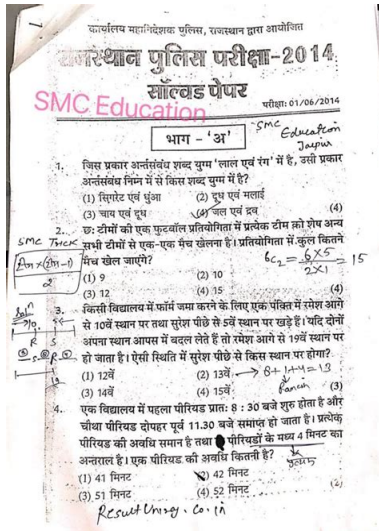 कार्यालय महानिदेशक पुलिस, राजस्थान द्वारा आयोजित
राजस्थान पुलिस परीक्षा-2014
सॉल्वड पेपर
SMC Education
परीक्षा: 01/06/2014
भाग - 'अ'
SMC Education Jaipur
1. जिस प्रकार अन्तसंबंध शब्द युग्म 'लाल एवं रंग' में है, उसी प्रकार
अन्तसंबंध निम्न में से किस शब्द युग्म में है?
(1) सिगरेट एवं धुंआ (2) दूध एवं मलाई
(3) चाय एवं दूध (4) जल एवं द्रव (4)
2. छ: टीमों की एक फुटबॉल प्रतियोगिता में प्रत्येक टीम को शेष अन्य
SMC Trick
सभी टीमों से एक-एक मैच खेलना है। प्रतियोगिता में कुल कितने
मैच खेल जाएंगे?
6C2 = 6x5 / 2x1 = 15
(1) 9 (2) 10
(3) 12 (4) 15 (4)
3. किसी विद्यालय में फॉर्म जमा करने के लिए एक पंक्ति में रमेश आगे
से 10वें स्थान पर तथा सुरेश पीछे से 5वें स्थान पर खड़े हैं। यदि दोनों
अपना स्थान आपस में बदल लेते हैं तो रमेश आगे से 19वें स्थान पर
हो जाता है। ऐसी स्थिति में सुरेश पीछे से किस स्थान पर होगा?
(1) 12वें (2) 13वें → 8+1+4=13
(3) 14वें (4) 15वें (3)
4. एक विद्यालय में पहला पीरियड प्रात: 8 : 30 बजे शुरु होता है और
चौथा पीरियड दोपहर पूर्व 11.30 बजे समाप्त हो जाता है। प्रत्येक
पीरियड की अवधि समान है तथा पीरियडों के मध्य 4 मिनट का
अन्तराल है। एक पीरियड की अवधि कितनी है?
(1) 41 मिनट (2) 42 मिनट
(3) 51 मिनट (4) 52 मिनट (2)